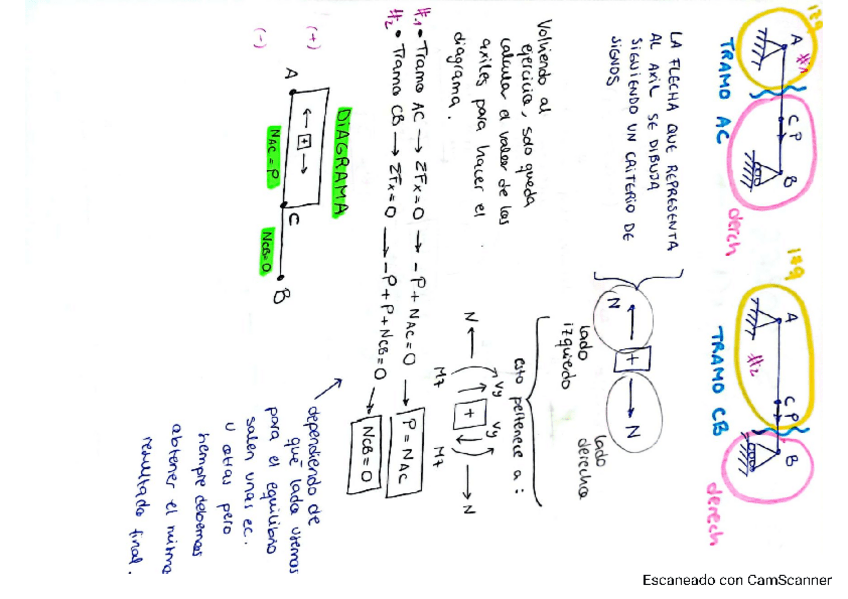 izq
A
#1
C
P
B
TRAMO AC
derch
izq
A
#2
C
P
B
TRAMO CB
derech
LA FLECHA QUE REPRESENTA
AL AXIL SE DIBUJA
SIGUIENDO UN CRITERIO DE
SIGNOS
N ← + → N
lado
izquierdo
lado
derecho
esto pertenece a :
Volviendo al
ejercicio, solo queda
calcular el valor de los
axiles para hacer el
diagrama.
N
Mz
Vy
+
Vy
Mz
N
#1 • Tramo AC → ΣFx=0 → -P+NAC=0 → P=NAC
#2 • Tramo CB → ΣFx=0 → -P+P+NCB=0 → NCB=0
DIAGRAMA
(+)
(-)
A
← + →
C
B
NAC=P
NCB=0
dependiendo de
qué lado usemos
para el equilibrio
salen unas ec.
u otras pero
siempre debemos
obtener el mismo
resultado final.
Escaneado con CamScanner